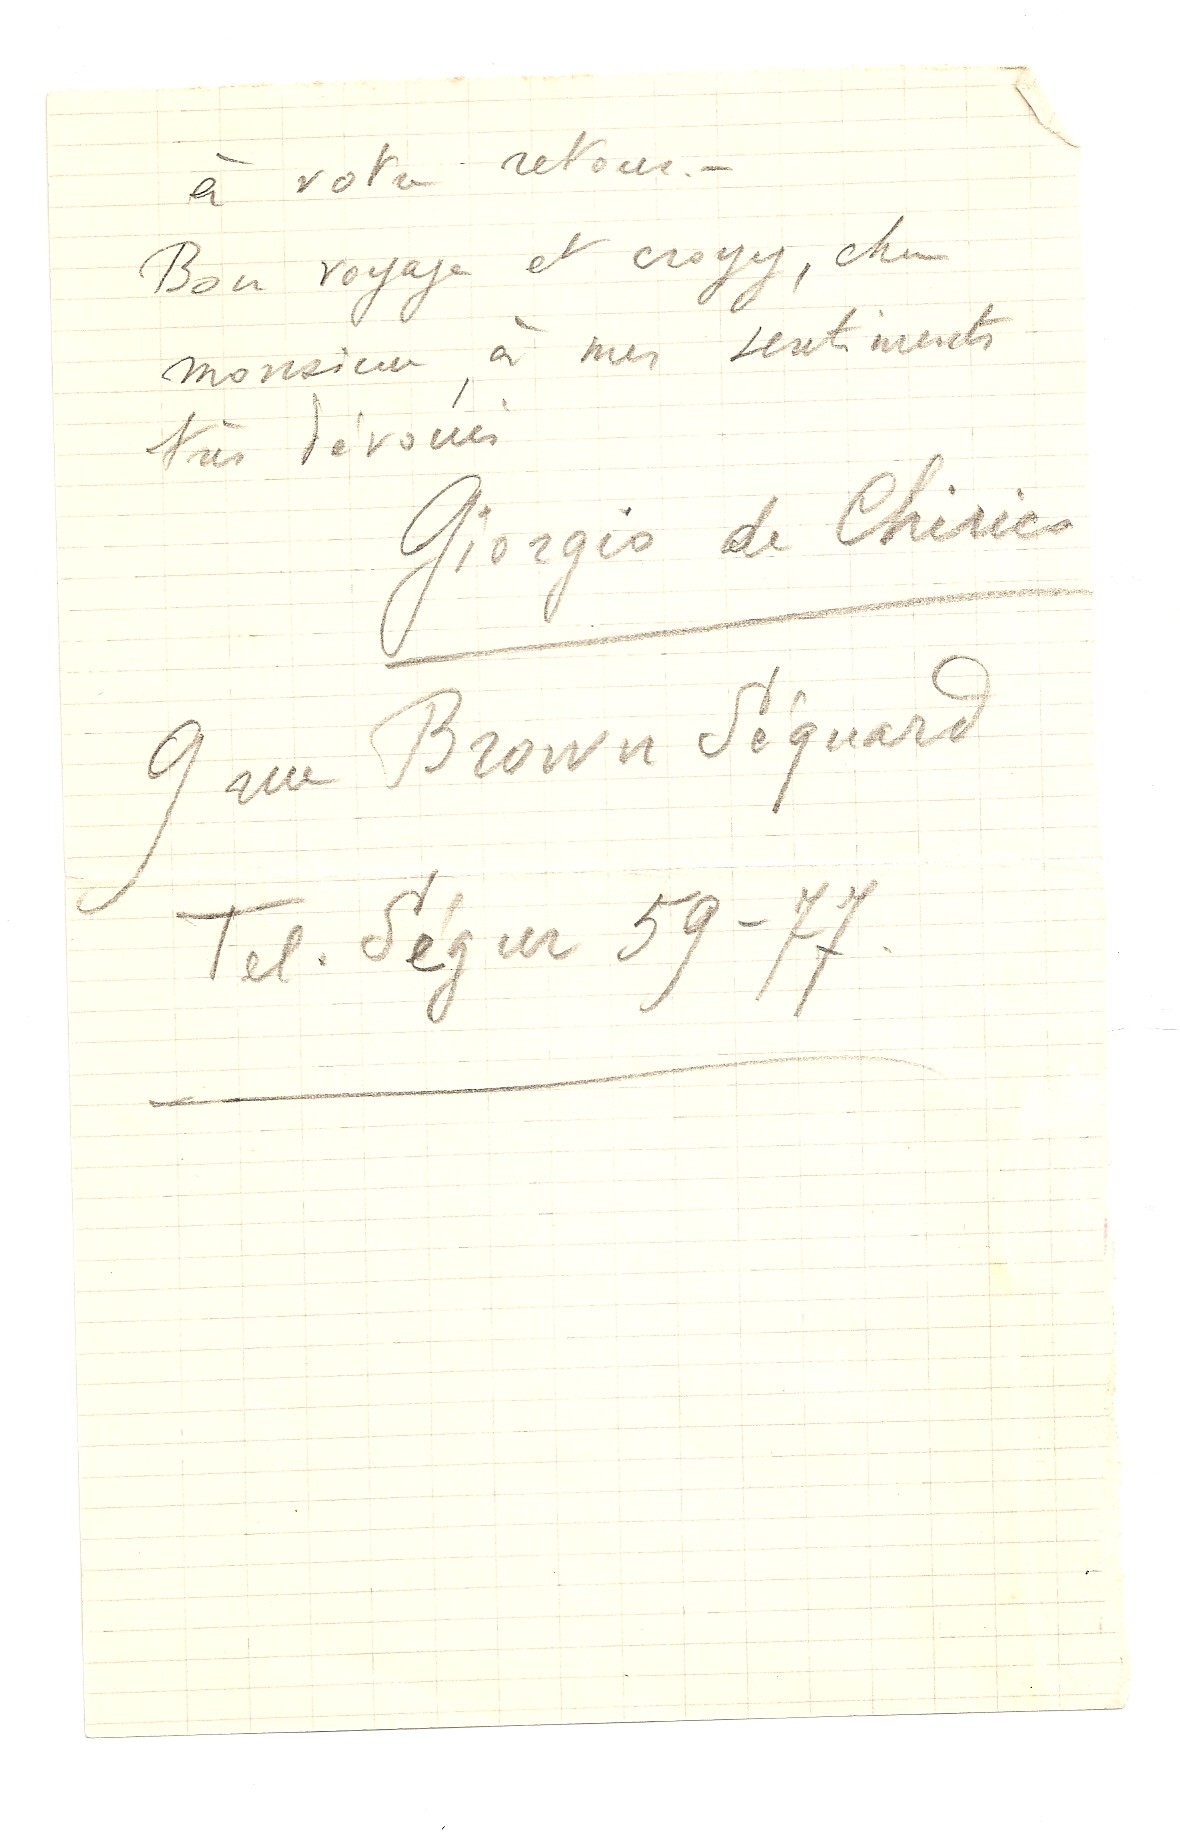 à votre retour. –
Bon voyage et croyez, cher
monsieur, à mes sentiments
très dévoués
Giorgio de Chirico
9 rue Brown Séquard
Tel. Ségur 59-77.